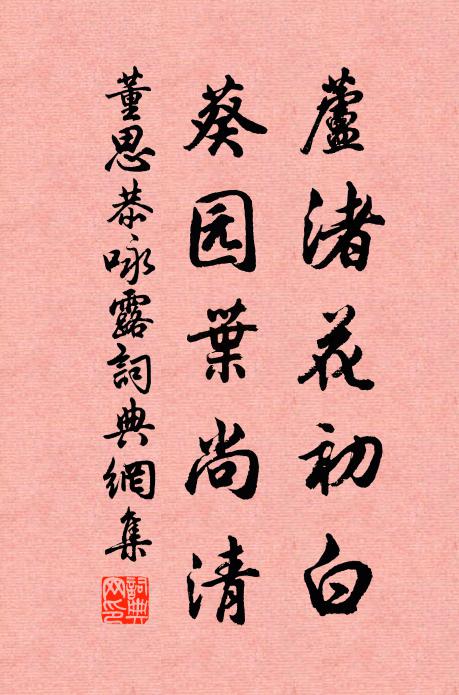 蘆渚花初白
葵园葉尚清
董思恭咏露詞典網集
詞典网印